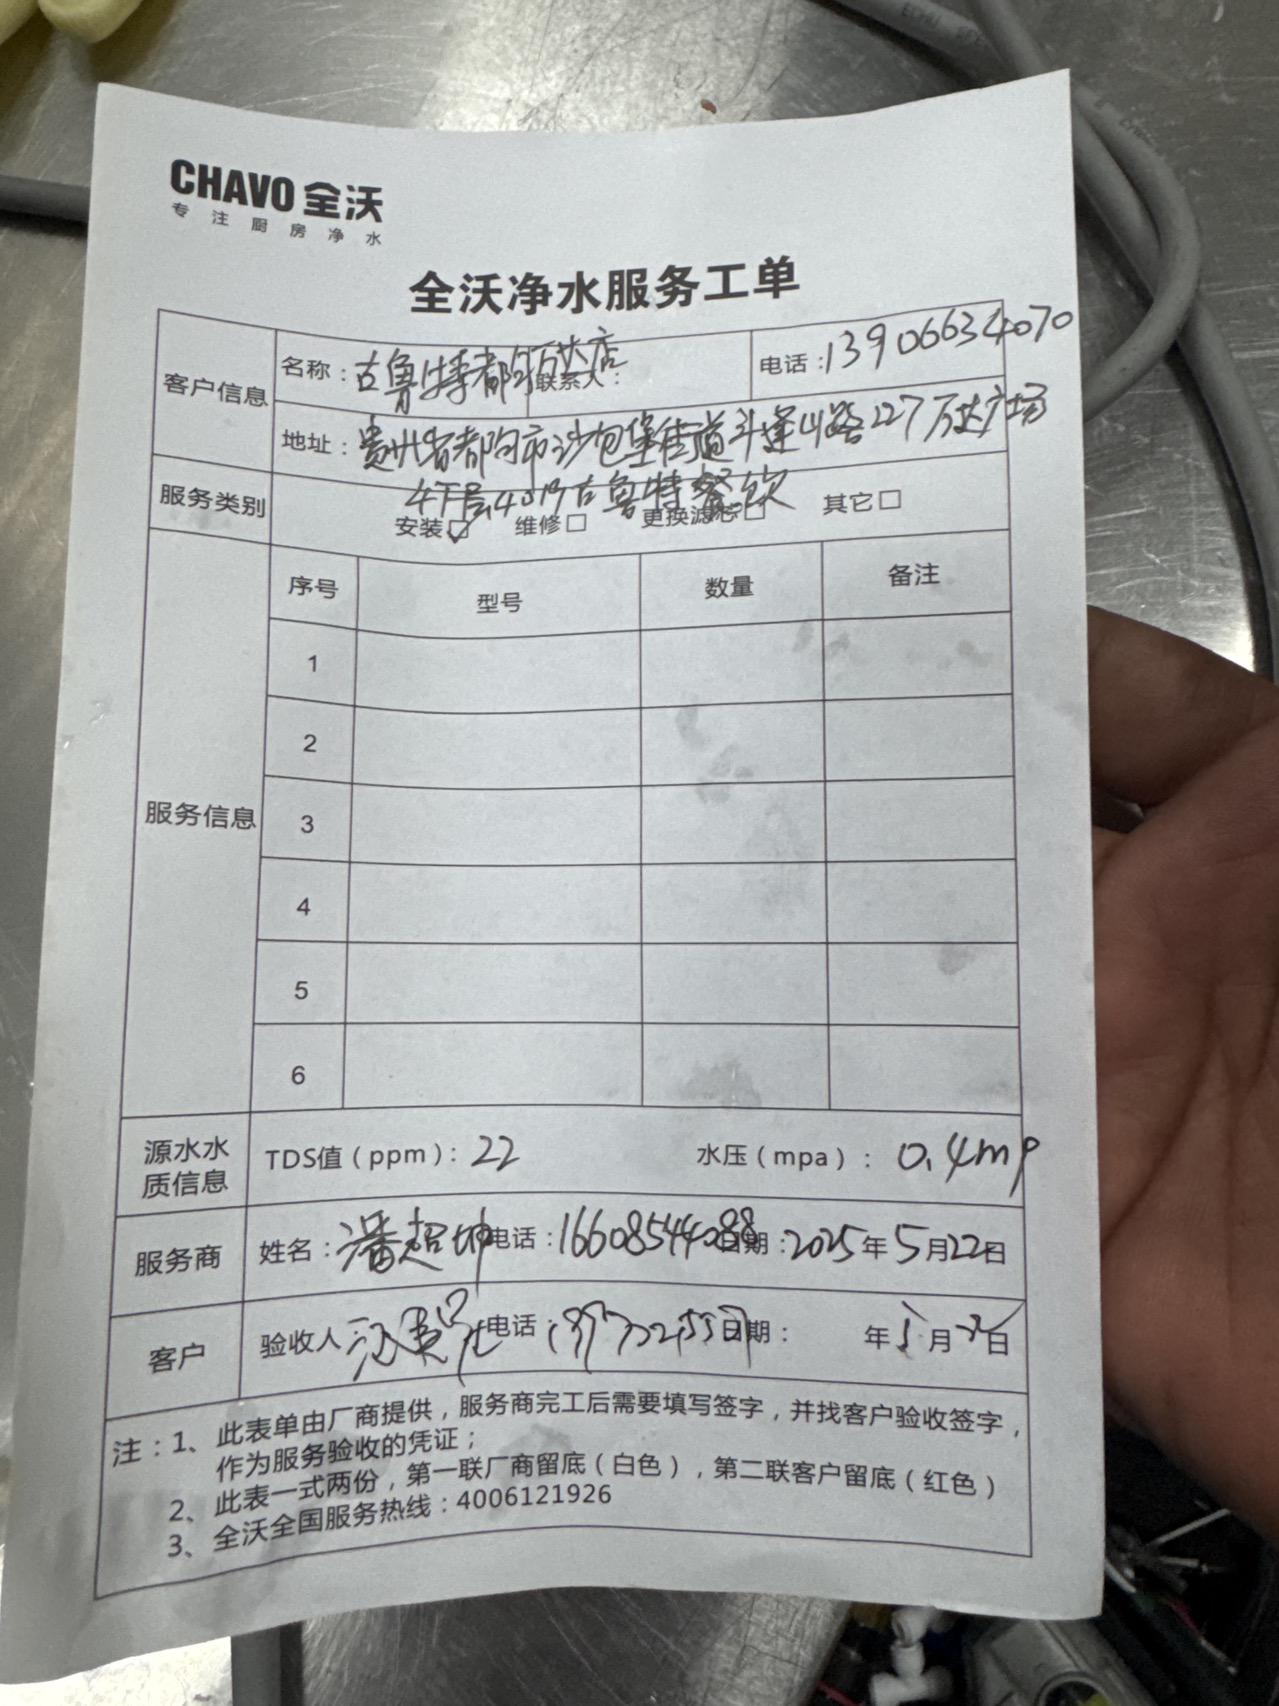 CHAVO 全沃
专注厨房净水
全沃净水服务工单
客户信息 名称：古鲁特都匀万达店 联系人： 电话：13906634070
地址：贵州省都匀市沙包堡街道斗篷山路127万达广场
4下层4017古鲁特餐饮
服务类别 安装☑ 维修□ 更换滤芯□ 其它□
服务信息 序号 型号 数量 备注
1
2
3
4
5
6
源水水质信息 TDS值（ppm）：22 水压（mpa）：0.4mp
服务商 姓名：潘超坤 电话：16608544088 日期：2025年5月22日
客户 验收人 电话： 日期： 年5月 日
注：1、此表单由厂商提供，服务商完工后需要填写签字，并找客户验收签字，
作为服务验收的凭证；
2、此表一式两份，第一联厂商留底（白色），第二联客户留底（红色）
3、全沃全国服务热线：4006121926